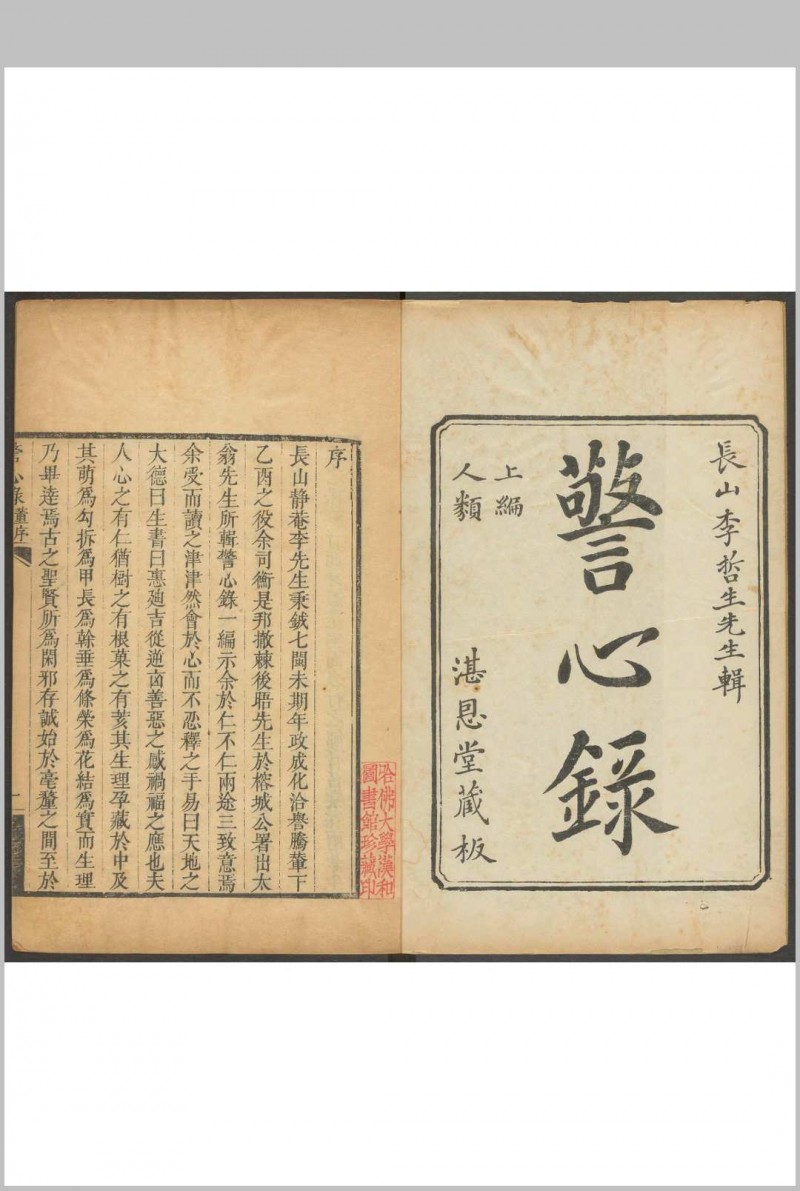 長山李哲生先生輯
警心錄
上編
人類
湛恩堂藏板
序
長山靜菴李先生秉鉞七閩未期年政成化洽譽騰輦下
乙酉之役余司衡是邦撤棘後晤先生於榕城公署出太
翁先生所輯警心錄一編示余於仁不仁兩途三致意焉
余受而讀之津津然會於心而不忍釋之手易曰天地之
大德曰生書曰惠廸吉從逆凶善惡之感禍福之應也夫
人心之有仁猶樹之有根菓之有荄其生理孕藏於中及
其萌爲勾拆爲甲長爲幹垂爲條榮爲花結爲實而生理
乃畢逹焉古之聖賢所爲閑邪存誠始於毫釐之間至於
警心錄董序
一
哈佛大學漢和
圖書館珍藏印